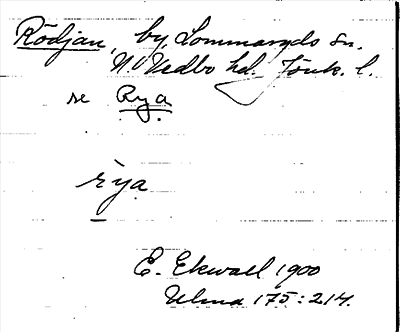 Rödjan, by, Lommaryds sn.
N. Vedbo hd. Jönk. l.
se Rya
rya
E. Ekwall 1900
Ulma 175:214.